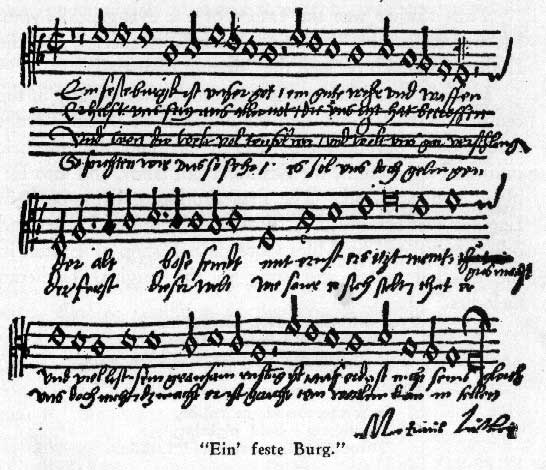 Ein feste burg ist vnser got / ein gute wehr vnd waffen
Er hilfft vns frey aus aller not / die vns itzt hat betroffen
Vnd wen die welt vol teuffel wer / vnd wolt vns gar verschling
So furchten wir vns so sehr / es sol vns doch gelingen
Der alt bose feindt mit ernst ers itzt meint
der furst dieser welt wie saur er sich stelt thut er
vnd viel list sein grausam rustung ist auf erd ist nicht seins gleich
vns doch nicht macht er ist ein wortlein kan in fellen
Martinus Luther
“Ein’ feste Burg.”